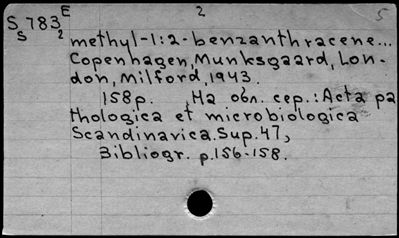 E 2 5
S 783
S 2 methyl-1:2-benzanthracene...
Copenhagen, Munksgaard, Lon-
don, Milford, 1943.
158p. На обл. сер.: Acta pa
thologica et microbiologica
Scandinavica. Sup. 47,
Bibliogr. p. 156-158.